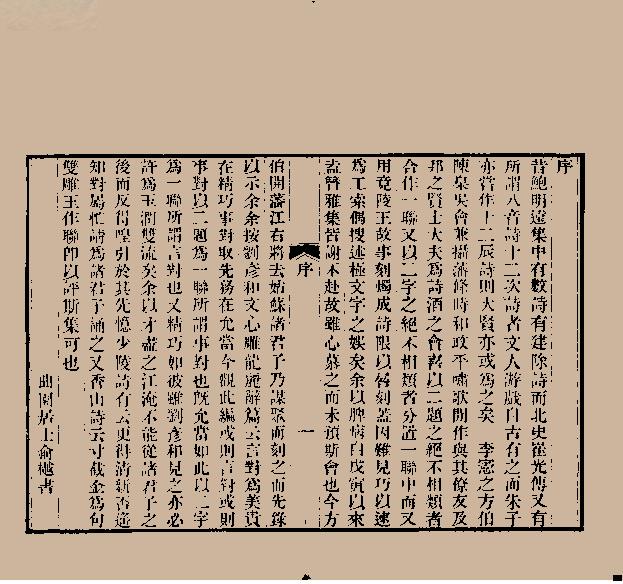 序
昔鮑明遠集中有數詩有建除詩而北史崔光傳又有
所謂八音詩十二次詩者文人游戲自古有之而朱子
亦嘗作十二辰詩則大賢亦或爲之矣 李憲之方伯
陳臬吳會兼攝藩條時和政平嘯歌閒作與其僚友及
邦之賢士大夫爲詩酒之會喜以二題之絕不相類者
合作一聯又以二字之絕不相類者分置一聯中而又
用竟陵王故事刻燭成詩限以晷刻蓋因難見巧以速
爲工索偶搜述極文字之娛矣余以脾病自戊寅以來
孟管雅集皆謝不赴故雖心慕之而未預斯會也今方
序
一
伯開藩江右將去姑蘇諸君子乃謀聚而刻之而先錄
以示余余按劉彥和文心雕龍麗辭篇云言對爲美貴
在精巧事對取先務在允當今觀此編或則言對或則
事對以二題爲一聯所謂事對也旣允當如此以二字
爲一聯所謂言對也又精巧如彼雖劉彥和見之亦必
許爲玉潤雙流矣余以才盡之江淹不能從諸君子之
後而反得喤引於其先憶少陵詩有云更得清新否遙
知對屬忙請爲諸君子誦之又香山詩云寸截金爲句
雙雕玉作聯卽以評斯集可也
曲園居士俞樾書